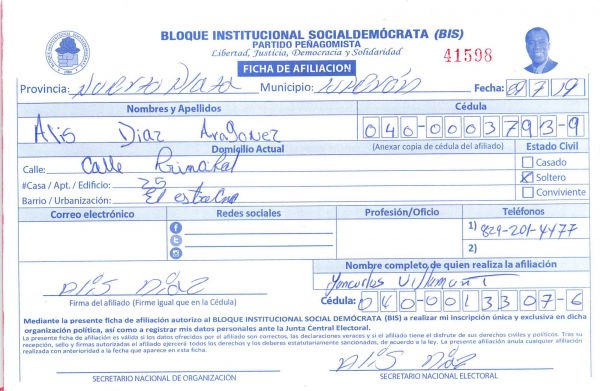 BLOQUE INSTITUCIONAL SOCIALDEMÓCRATA (BIS)
PARTIDO PEÑAGOMISTA
Libertad, Justicia, Democracia y Solidaridad
41598
FICHA DE AFILIACION
Provincia: Puerto Plata Municipio: Fecha: 09/7/19
Nombres y Apellidos Cédula
Alis Diaz 040-0003793-9
Domicilio Actual (Anexar copia de cédula del afiliado) Estado Civil
Calle: Calle Principal Casado
#Casa / Apt. / Edificio: 25 Soltero
Barrio / Urbanización: Conviviente
Correo electrónico Redes sociales Profesión/Oficio Teléfonos
1) 829-201-4477
2)
Alis Diaz Nombre completo de quien realiza la afiliación
Firma del afiliado (Firme igual que en la Cédula)
Cédula: 040-0013307-6
Mediante la presente ficha de afiliación autorizo al BLOQUE INSTITUCIONAL SOCIAL DEMÓCRATA (BIS) a realizar mi inscripción única y exclusiva en dicha
organización política, así como a registrar mis datos personales ante la Junta Central Electoral.
La presente ficha de afiliación es válida si los datos ofrecidos por el afiliado son correctos, las declaraciones veraces y si el afiliado tiene el disfrute de sus derechos civiles y políticos. Tras su
recepción, sello y firmas autorizadas el afiliado ejercerá todos los derechos y los deberes estatutariamente sancionados, de acuerdo a la ley. La presente afiliación anula cualquier afiliación
realizada con anterioridad a la fecha que aparece en esta ficha.
Alis Diaz
SECRETARIO NACIONAL DE ORGANIZACIÓN SECRETARIO NACIONAL ELECTORAL